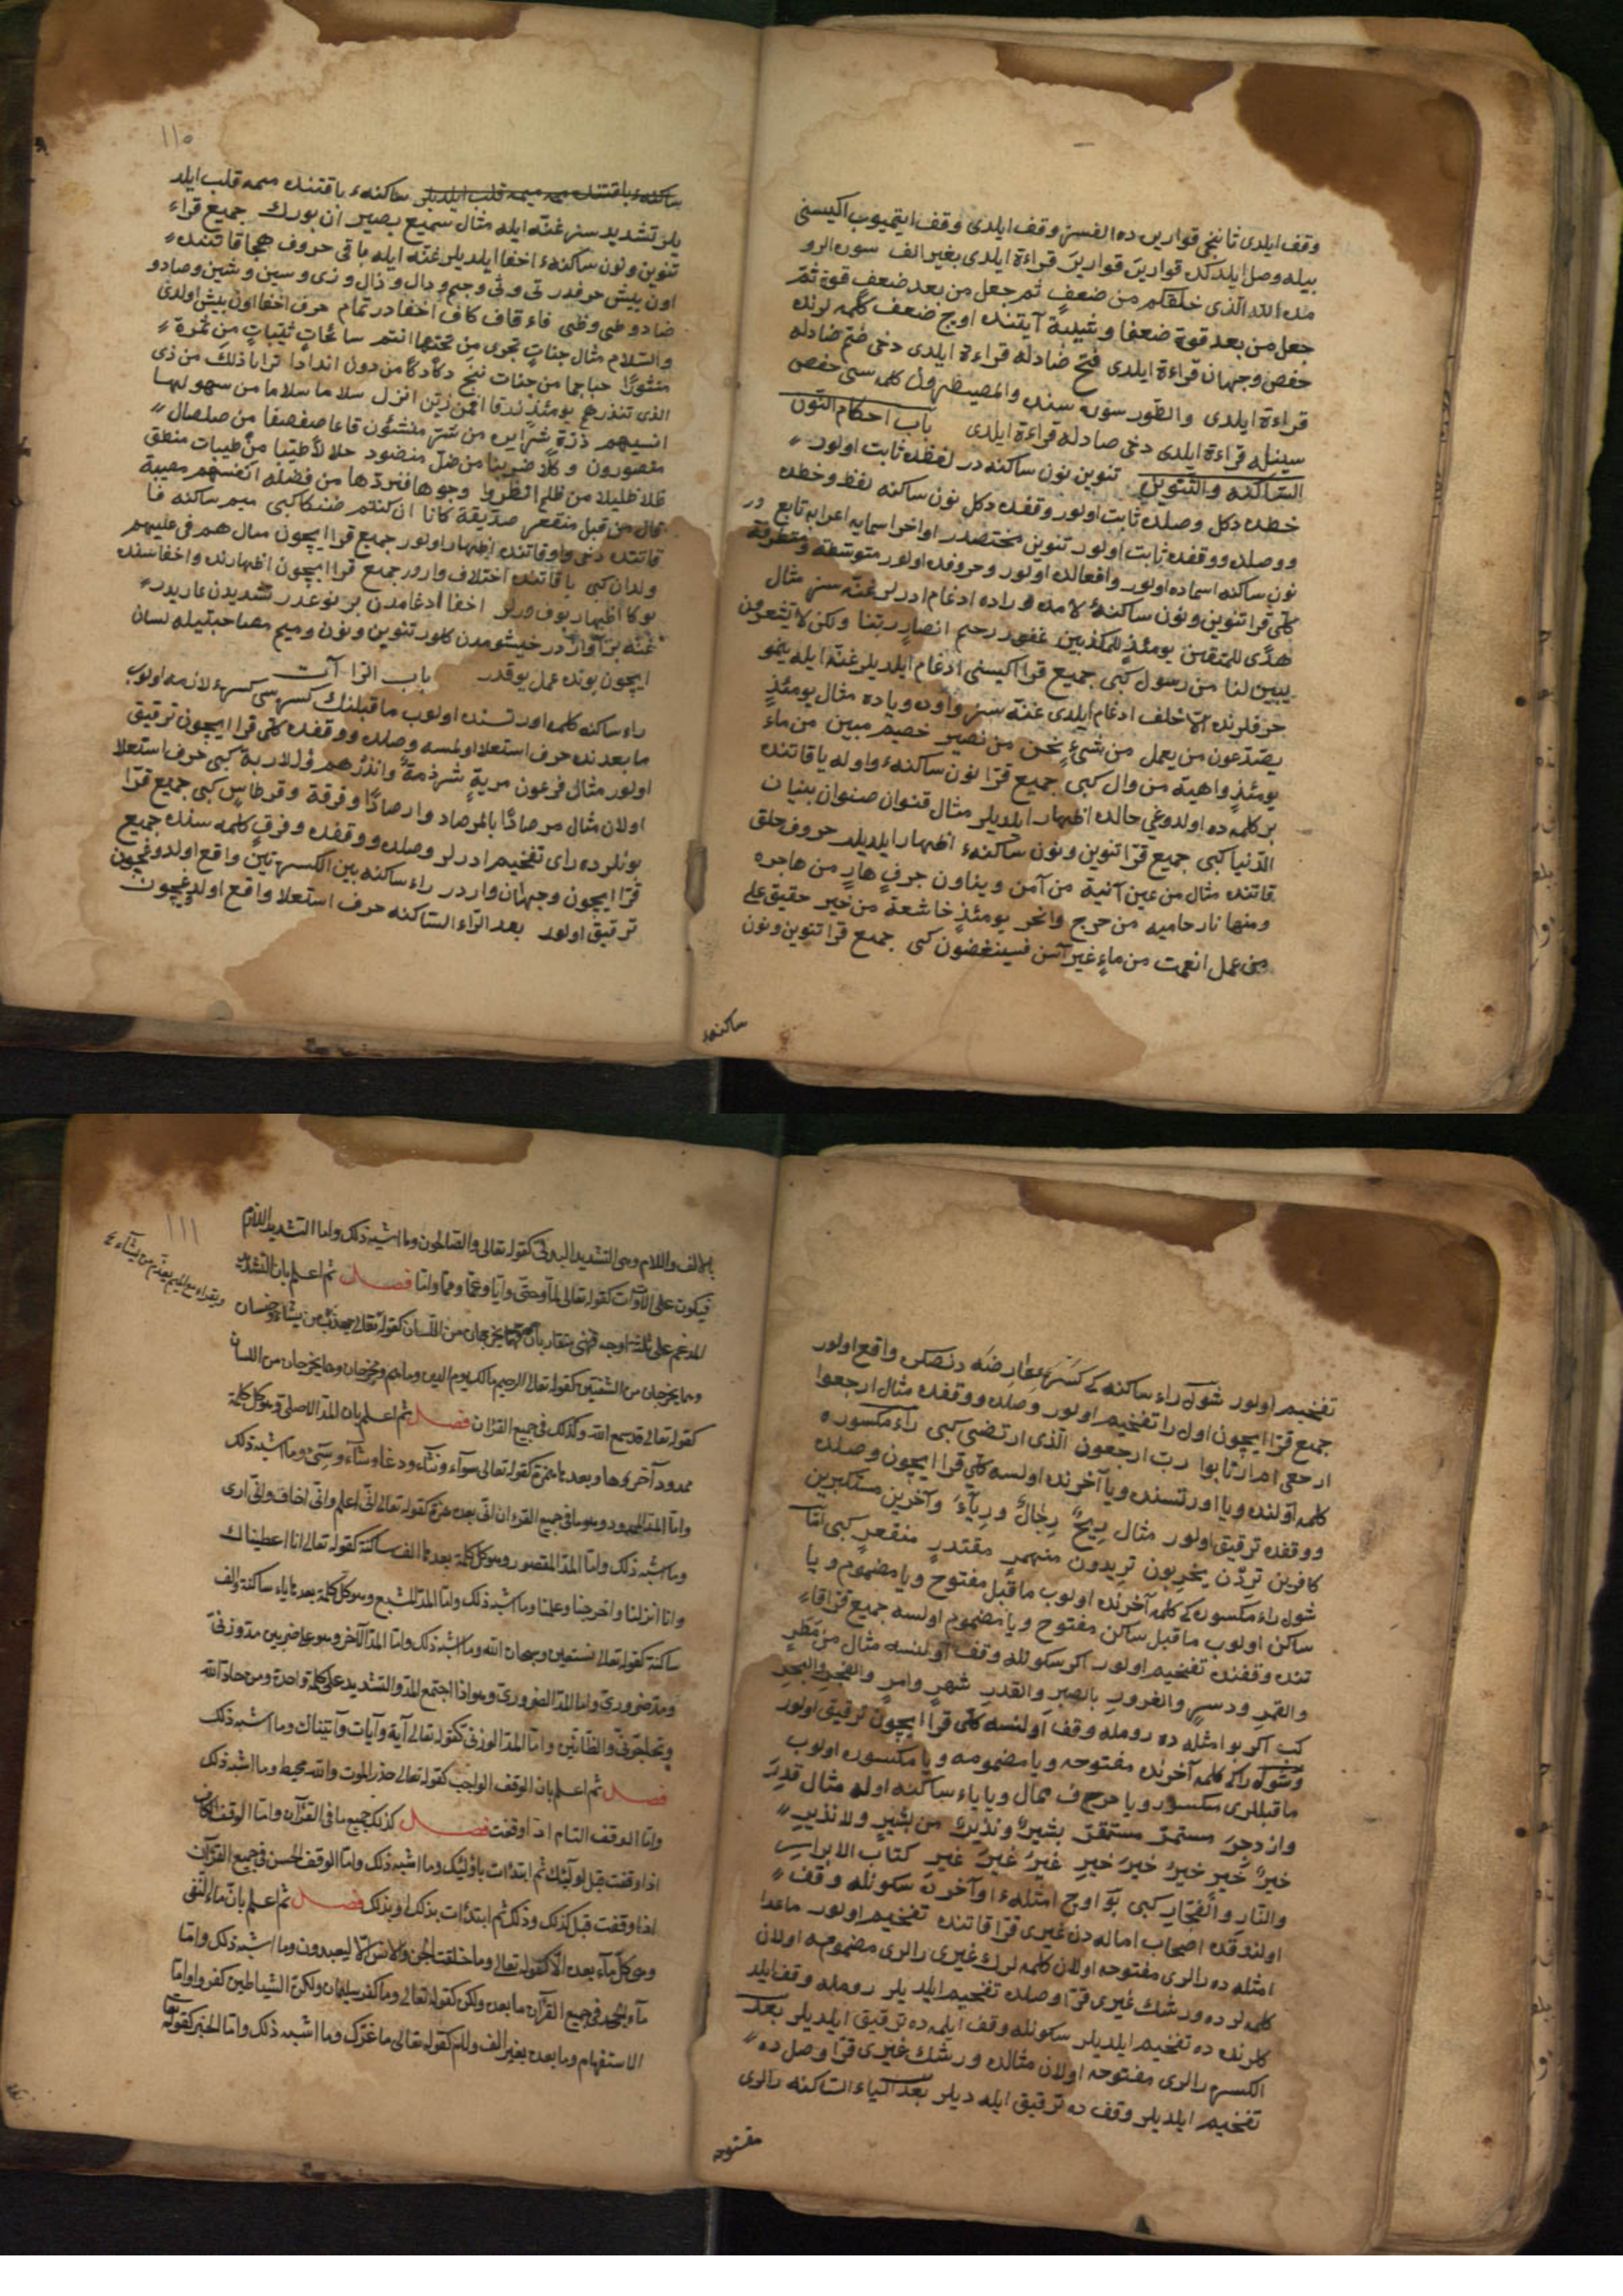 وقف ايلدى ثانينجى قواريرا ده الفسز وقف ايلدى وقف ايتميوب اكيسنى
بيله وصل ايلدكده قواريرَ قواريرَ قراءة ايلدى بغير الف سوره الرو
مده الله الّذى خلقكم من ضعفٍ ثم جعل من بعد ضعفٍ قوة ثمّ
جعل من بعد قوة ضعفا وشيبة آيتنده اوج ضعف كلمه لرنده
حفص وجهان قراءة ايلدى فتح ضادله قراءة ايلدى دخى ضم ضادله
قراءة ايلدى والطّور سوره سنده والمصيطرون كلمه سنى حفص
سينله قراءة ايلدى دخى صادله قراءة ايلدى باب احكام النّون
السّاكنه والتّنوين تنوين نون ساكنه در لفظده ثابت اولور
خطده دكل وصلده ثابت اولور وقفده دكل نون ساكنه لفظ وخطده
ووصلده ووقفده ثابت اولور تنوين مختصدر اواخر اسمايه اعرابه تابع در
نون ساكنه اسماده اولور وافعالده اولور وحروفده اولور متوسّطه ومتطرفة
كلّى قرا تنوين ونون ساكنهٔ لامده وراده ادغام ادرلر غنّه سز مثال
هدًى للمتقين يومئذٍ للمكذبين غفور رحيم انصارٍ ربّنا ولكن لا تشعرون
يبين لنا من رسول كبى جميع قرا اكيسنى ادغام ايلديلر غنّه ايله ينمو
حرفلرنده الّا خلف ادغام ايلدى غنّه سز واون وياده مثال يومئذٍ
يصّدّعون من يعمل من شىءٍ نحن من نصير خصيم مبين من ماء
يومئذٍ واهية من وال كبى جميع قرّا نون ساكنهء واوله يا قاتنده
بر كلمه ده اولدوغى حالده اظهار ايلديلر مثال قنوان صنوان بنيان
الدّنيا كبى جميع قرّا تنوين ونون ساكنهء اظهار ايلديلر حروف حلق
قاتنده مثال من عين آنية من آمن وينأون جرفٍ هارٍ من هاجره
ومنها نار حاميه من حرج وانحر يومئذٍ خاشعة من خير حقيق على
من عمل انعمت من ماءٍ غير آسن فسينغضون كبى جميع قرا تنوين ونون
ساكنهء
١١٠
ساكنهء باقتنده ميمه قلب ايلديلر ساكنهء با قتنده ميمه قلب ايلد
يلر تشديد سز غنّه ايله مثال سميع بصير ان بورك جميع قراء
تنوين ونون ساكنهء اخفا ايلديلر غنّه ايله باقى حروف هجا قاتنده
اون بيش حرفدر تى وثى وجيم ودال وذال وزى وسين وشين وصادو
ضاد وطى وظى فاء قاف كاف اخفادر تمام حرف اخفا اون بيش اولدى
والسّلام مثال جناتٍ تجرى من تحتها انتم سائحاتٍ ثيّباتٍ من ثمرة
منثورًا حبا جما من جنات ننج دكًا دكًا من دون اندادا ترابا ذلك من ذى
الذى تنذر هج يومئذٍ زرقا افمن زيّن انزل سلاما سلاما من سهولها
انسيهم ذرّة شرًا يره من شرّ منشئون قاعا صفصفا من صلصال
منصورون وكلًا ضربنا من ضلّ منضود حلالا طيّبا من طيبات منطق
ظلا ظليلا من ظلم انظروا وجوها فنردّها من فضله انفسهم مصيبة
قال من قبل منقعر صدّيقة كانا ان كنتم ضنكا كبى ميم ساكنه فا
قاتنده دخى واو قاتنده اظهار اولور جميع قرا ايچون مثال هم فى عليهم
ولدان كبى با قاتنده اختلاف واردر جميع قرا ايچون اظهارنده واخفاسنده
بوكا اظهار بوف ديرلر اخفا ادغامدن بر نوعدر تشديدن عاريدر
غنّه بر آوازدر خيشومدن كلور تنوين ونون وميم مصاحبتيله لسان
ايچون بونده عمل يوقدر باب الراآت
راء ساكنه كلمه اورتسنده اولوب ما قبلنك كسره سى كسرهٔ لازمه اولوب
ما بعدنده حرف استعلا اولمسه وصلده ووقفده كلّى قرا ايچون ترقيق
اولور مثال فرعون مريةٍ شرذمةٌ وانذرهم ولا اربة كبى حرف استعلا
اولان مثال مرصادًا بالمرصاد وارصادًا وفرقة وقرطاسٍ كبى جميع قرّا
بونلرده راى تفخيم ادرلر وصلده ووقفده وفرقٍ كلمه سنده جميع
قرّا ايچون وجهان واردر راء ساكنه بين الكسرتين واقع اولدوغيچون
ترقيق اولور بعد الرّاء السّاكنه حرف استعلا واقع اولدوغيچون
تفخيم اولور شول راء ساكنه كه كسرهٔ عارضه دنصكره واقع اولور
جميع قرّا ايچون اول را تفخيم اولور وصلده ووقفده مثال ارجعوا
ارجعى ام ارتابوا ربّ ارجعون الّذى ارتضى كبى راء مكسوره
كلمه اولنده ويا اورتسنده ويا آخرنده اولسه كلّى قرا ايچون وصلده
ووقفده ترقيق اولور مثال ريحٌ رجالٌ ورياءَ وآخرين مستكبرين
كافرين تردّن يخربون تريدون منهمرٍ مقتدرٍ منقعرٍ كبى امّا
شول راء مكسوره كه كلمه آخرنده اولوب ما قبل مفتوح ويا مضموم ويا
ساكن اولوب ما قبل ساكن مفتوح ويا مضموم اولسه جميع قرّا قا
تنده وقفنده تفخيم اولور اكر سكونله وقف اولنسه مثال من مطرٍ
والقمر ودسرٍ والغرور بالصبر والقدر شهرٍ وامرٍ والفجر والبحر
كبى اكر بو امثله ده رومله وقف اولنسه كلّى قرّا ايچون ترقيق اولور
وشول راكه كلمه آخرنده مفتوحه ويا مضمومه ويا مكسوره اولوب
ما قبللرى مكسور ويا حرف ممال ويا ياء ساكنه اوله مثال قدر
وازدجر مستمرّ مستقرّ بشيرٌ ونذيرٌ من بشيرٍ ولا نذيرٍ
خيرٌ خيرٍ خيرٌ خيرَ خيرِ غيرَ غيرُ غيرِ كتاب الابرار
والنّار والفجّار كبى بو اوج امثلهء اواخرنه سكونله وقف
اولندقده اصحاب اماله دن غيرى قرّا قاتنده تفخيم اولور ماعدا
امثله ده رالرى مفتوحه اولان كلمه لرك غيرى رالرى مضمومه اولان
كلمه لر ده ورشك غيرى قرّا وصلده تفخيم ايلديلر رومله وقف ايلد
كلرنده ده تفخيم ايلديلر سكونله وقف ايلمه ده ترقيق ايلديلر بعد
الكسره رالرى مفتوحه اولان مثالده ورشك غيرى قرّا وصل ده
تفخيم ايلديلر وقف ده ترقيق ايله ديلر بعد الياء السّاكنه رالرى
مفتوحه
١١١
بالالف واللام وهى التشديد البدلى كقوله تعالى والصالحون وما اشبه ذلك واما التشديد اللازم
فيكون على الادوات كقوله تعالى لمّا وحتّى وايّا وعمّا وممّا وامّا فصل ثم اعلم بان التشديد
المدغم على ثلثة اوجه متقاربان يخرجان من اللسان كقوله تعالى يعذب من يشاء وجنسان
وهما يخرجان من الشفتين كقوله تعالى الرحيم مالك يوم الدين وهما يخرجان من اللسان
كقوله تعالى قد سمع الله وكذلك فى جميع القرآن فصل ثم اعلم بان المدّ الاصلى هو كل كلمة
ممدود آخرها وبعدها همزة كقوله تعالى سوآء ونسآء ودعآء وشآء وسىء وما اشبه ذلك
وامّا المدّ الممدود وهو ما فى جميع القرءان انى بعده همزة كقوله تعالى انّى اعلم وانّى اخاف وانّى ارى
وما اشبه ذلك وامّا المدّ المقصور وهو كل كلمة بعدها الف ساكنة كقوله تعالى انا اعطيناك
وانا انزلنا واخرجنا وعلمنا وما اشبه ذلك وامّا المدّ المشبع وهو كل كلمة بعدها ياء ساكنة والف
ساكنة كقوله تعالى نستعين وسبحان الله وما اشبه ذلك وامّا المدّ الآخر وهو على ضربين مدّ وزنىّ
ومدّ ضرورىّ وامّا المدّ الضرورىّ وهو اذا اجتمع المدّ والتشديد على كلمة واحدة ومن حادّ الله
وتحاجّونّى والظّانّين وامّا المدّ الوزنى كقوله تعالى آية وآيات وآتيناك وما اشبه ذلك
فصل ثم اعلم بان الوقف الواجب كقوله تعالى حذر الموت والله محيط وما اشبه ذلك
وامّا الوقف التام اذا وقفت فصل كذلك جميع ما فى القرآن وامّا الوقف الكاف
اذا وقفت قبل لولئك ثم ابتدأت باولئك وما اشبه ذلك وامّا الوقف الحسن فى جميع القرآن
اذا وقفت قبل كذلك وذلك ثم ابتدأت بذلك وبذلك فصل ثم اعلم بانّ ماء النّفى
وهى كلّ ماء بعده الّا كقوله تعالى وما خلقت الجن والانس الّا ليعبدون وما اشبه ذلك وامّا
مآء الجحد فى جميع القرآن ما بعده ولكن كقوله تعالى وما كفر سليمان ولكنّ الشياطين كفروا وامّا
الاستفهام وما بعده بغير الف ولام كقوله تعالى ما غرّك وما اشبه ذلك وامّا الخبر كقوله تعالى